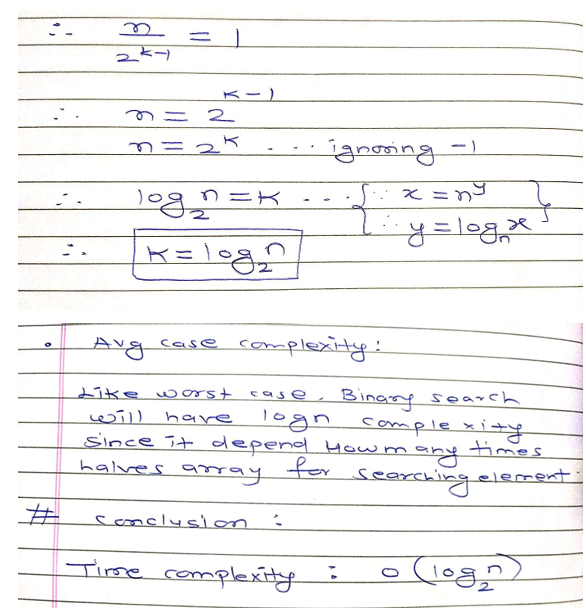 ∴ n/2^(k-1) = 1
∴ n = 2^(k-1)
n = 2^k ... ignoring -1
∴ log₂n = k ... {∵ x = n^y
∴ y = logₙx}
∴ k = log₂n
• Avg case complexity:
Like worst case, Binary search
will have logn complexity
since it depend How many times
halves array for searching element.
# conclusion :
Time complexity : O(log₂n)